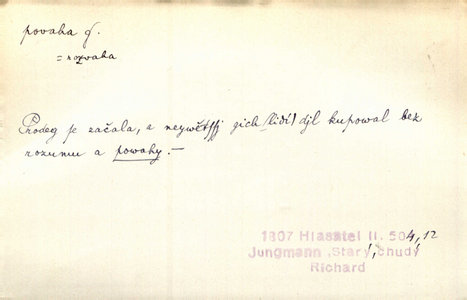 povaha f.
= rozvaha
Prodeg se začala, a neywětssj gich /lidí/ djl kupowal bez
rozumu a powahy. —
1807 Hlasatel II. 504, 12
Jungmann, Starý, chudý
Richard